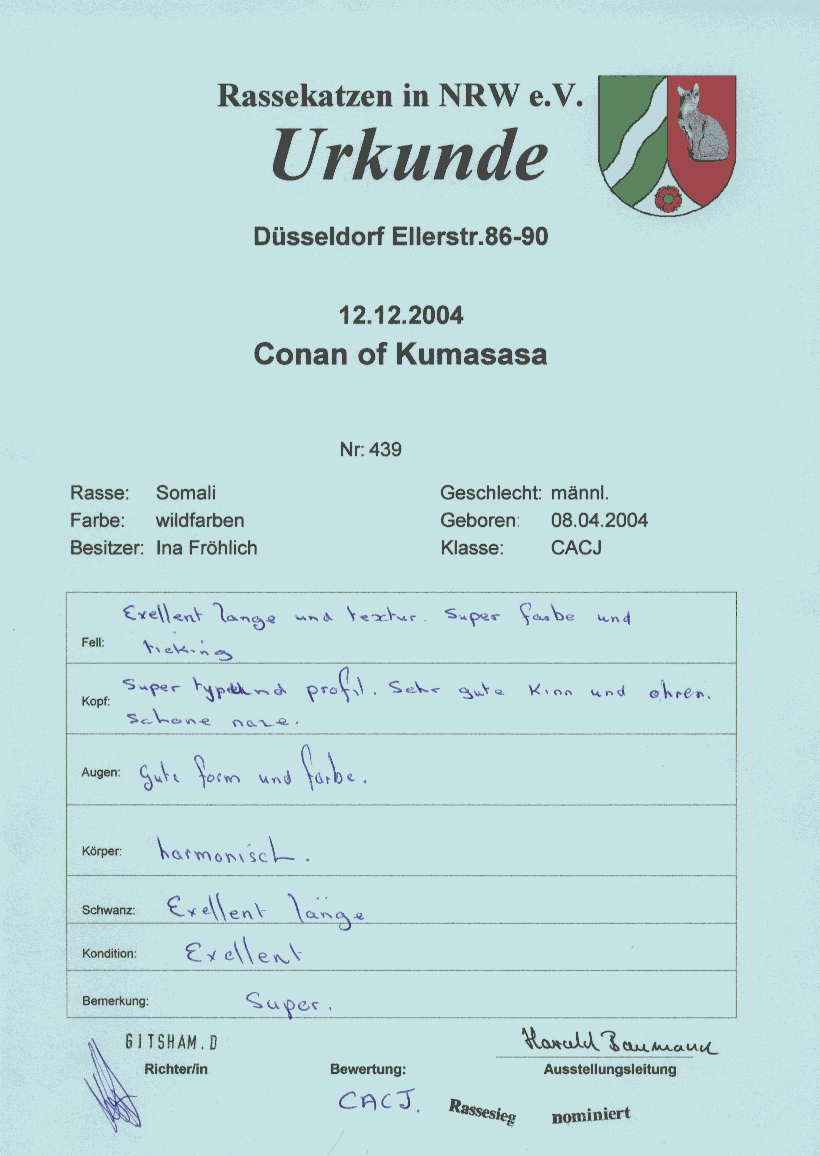 Rassekatzen in NRW e.V.
Urkunde
Düsseldorf Ellerstr.86-90
12.12.2004
Conan of Kumasasa
Nr: 439
Rasse: Somali Geschlecht: männl.
Farbe: wildfarben Geboren: 08.04.2004
Besitzer: Ina Fröhlich Klasse: CACJ
Exellent lange und textur. Super farbe und
Fell: ticking
Super type und profil. Sehr gute Kinn und ohren.
Kopf: schone naze.
Augen: Gute form und farbe.
Körper: harmonisch.
Schwanz: Exellent länge
Kondition: Exellent
Bemerkung: Super.
GITSHAM.D Harald Baumann
Richter/in Bewertung: Ausstellungsleitung
CACJ. Rassesieg nominiert